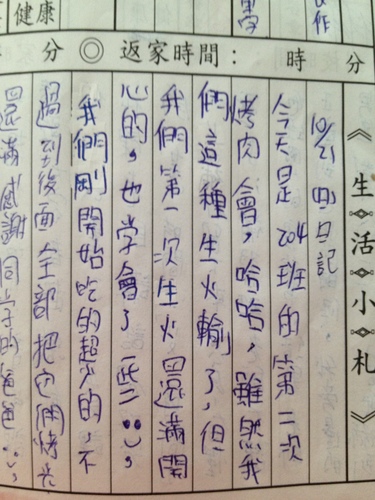 健康
分 ◎ 返家時間： 時 分
《生活小札》
10/21 四 日記
今天是204班的第二次
烤肉會，哈哈，雖然我
們這種生火輸了，但
我們第一次生火還滿開
心的，也學會了一些 :)，
我們剛開始吃的超少的，不
過到後面全部把它們烤光
還滿感謝同學的爸爸 :)，